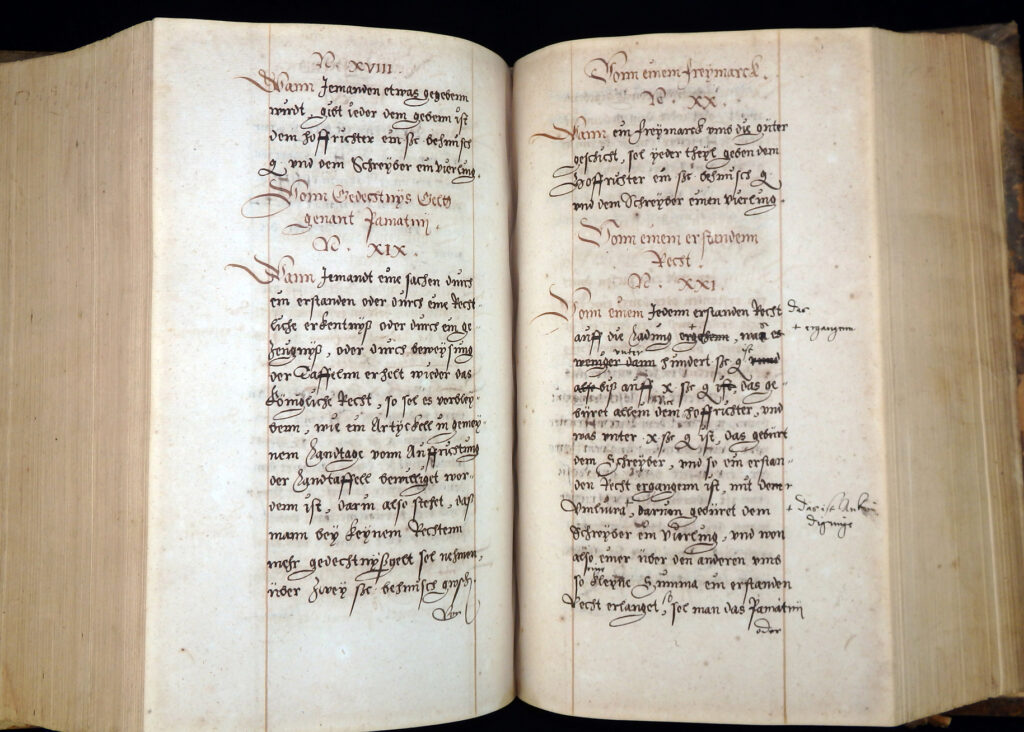 N. XVIII.
Wann Jemanden etwas gegebenn
wurdt, gibt ieder dem gebenn ist
dem Hoffrichter ein ßc behmisch
g. und dem Schreyber ein vierling.
Vonn Gedechtnÿs Gelt
genant Pamatnÿ.
N. XIX.
Wann Jemandt eine sachen durch
ein erstanden oder durch eine Recht-
liche erkentnÿß oder durch ein ge-
zeugnÿß, oder durch beweÿsung
der Taffelnn erhelt wieder das
Königliche Recht, so sol es vorbley-
benn, wie ein Artÿckell in gemey-
nem Landtage vonn Auffrichtung
der Landtaffell bewilliget wor-
denn ist, darin also stehet, daß
mann beÿ keÿnem Rechtenn
mehr gedechtnÿßgelt sol nehmen,
über zweÿ ßc behmisch grosch.
Vonn einem freÿmarck.
N. XX.
Wann ein freÿmarck umb die güter
geschicht, sol ÿeder theÿl geben dem
Hoffrichter ein ßc behmisch g
und dem Schreyber einen vierling.
Vonn einem erstandenn
Recht.
N. XXI.
Vonn einem Jedenn erstanden Recht das
auff die Ladung ergehenn, was es + ergangenn
weniger unter dann hundert ßc g ist unnd
also biß auff x ßc g ist, das ge-
büret allein dem Hoffrichter, und
was unter x ßc g ist, das gebürt
dem Schreyber, und so ein erstan-
den Recht ergangenn ist, mit dem
Umluwa +, daruon gebüret dem + das ist Ankün
digunge
Schreyber ein vierling, und wen
also einer über den anderen umb
so kleÿne Summa ein erstanden
Recht erlanget, so sol man das Pamatnÿ
oder